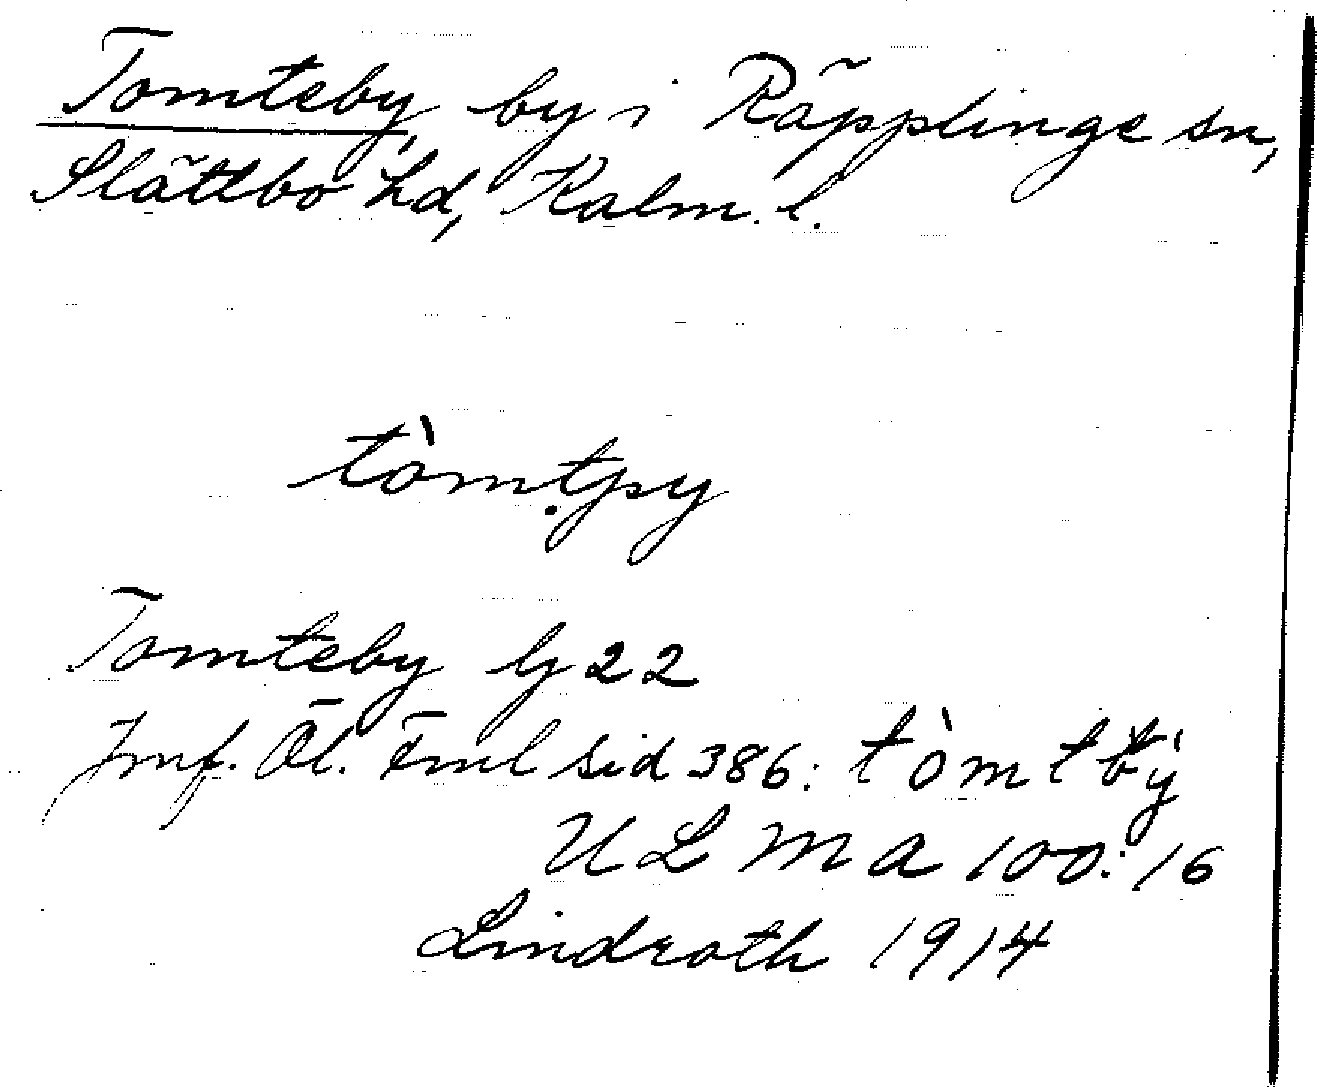 Tomteby, by i Räpplinge sn,
Slättbo hd, Kalm. l.
tòmtpy
Tomteby G 22
Jmf. Öl. Fml sid 386: tòmtbỳ
ULMA 100:16
Lindroth 1914